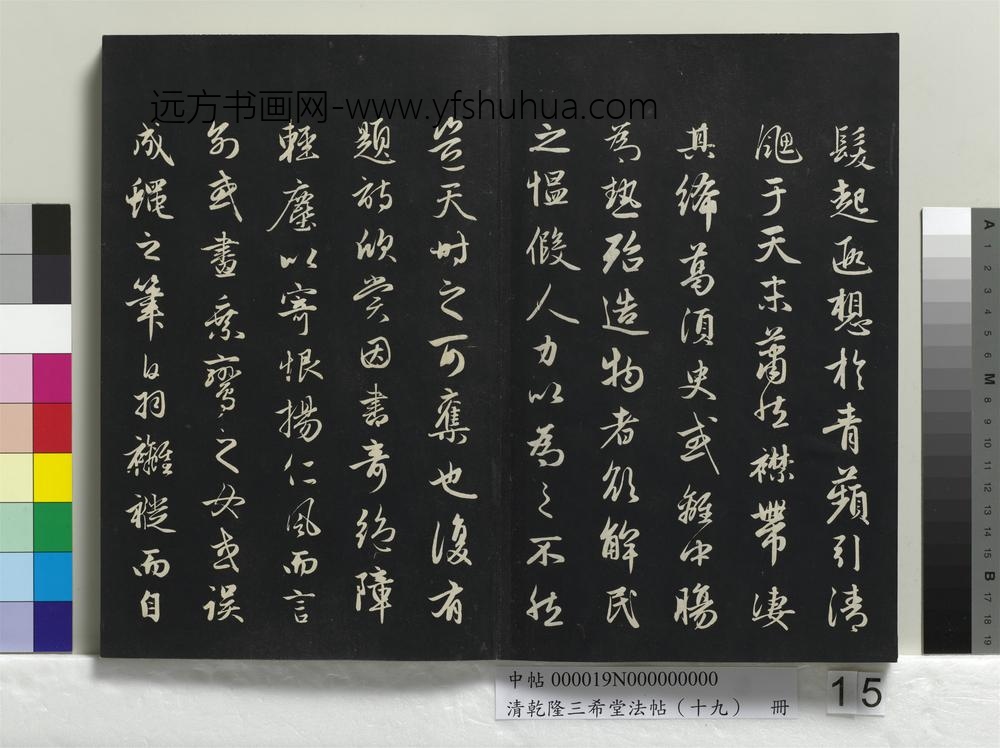 远方书画网-www.yfshuhua.com
髮起遐想於青蘋引清
颸于天末蕭然襟帶凄
其絺葛須臾或離中腸
為熱殆造物者欲解民
之愠假人力以為之不然
豈天時之可奪也復有
題詩欣賞因書奇絶障
輕塵以寄恨揚仁風而言
别或畫乘鸞之女或誤
成蠅之筆白羽襳褷而自
中帖 000019N000000000
清乾隆三希堂法帖（十九） 冊
15
A 1 2 3 4 5 6 M 8 9 10 11 12 13 14 15 B 17 18 19